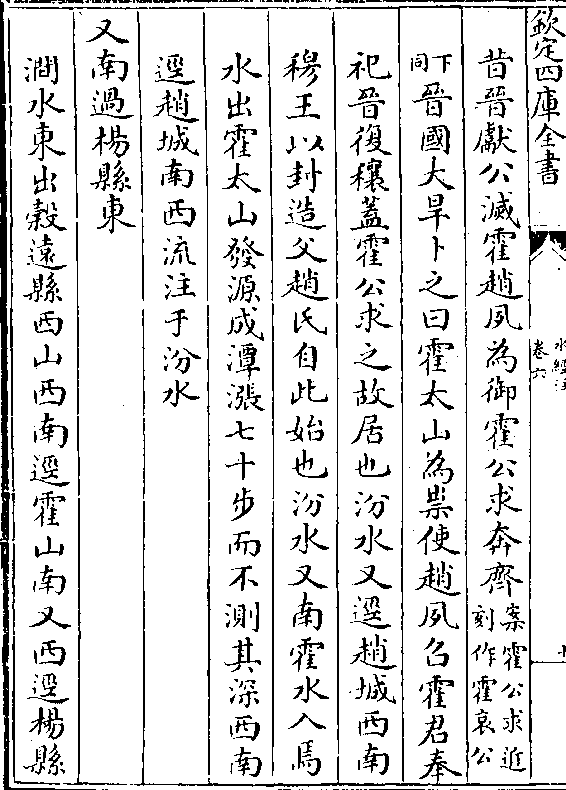 欽定四庫全書
水經注
卷六
昔晉獻公滅霍趙夙為御霍公求奔齊案霍公求近刻作霍哀公
下同晉國大旱卜之曰霍太山為祟使趙夙召霍君奉
祀晉復穰蓋霍公求之故居也汾水又逕趙城西南
穆王以封造父趙氏自此始也汾水又南霍水入焉
水出霍太山發源成潭漲七十步而不測其深西南
逕趙城南西流注于汾水
又南過楊縣東
澗水東出穀遠縣西山西南逕霍山南又西逕楊縣